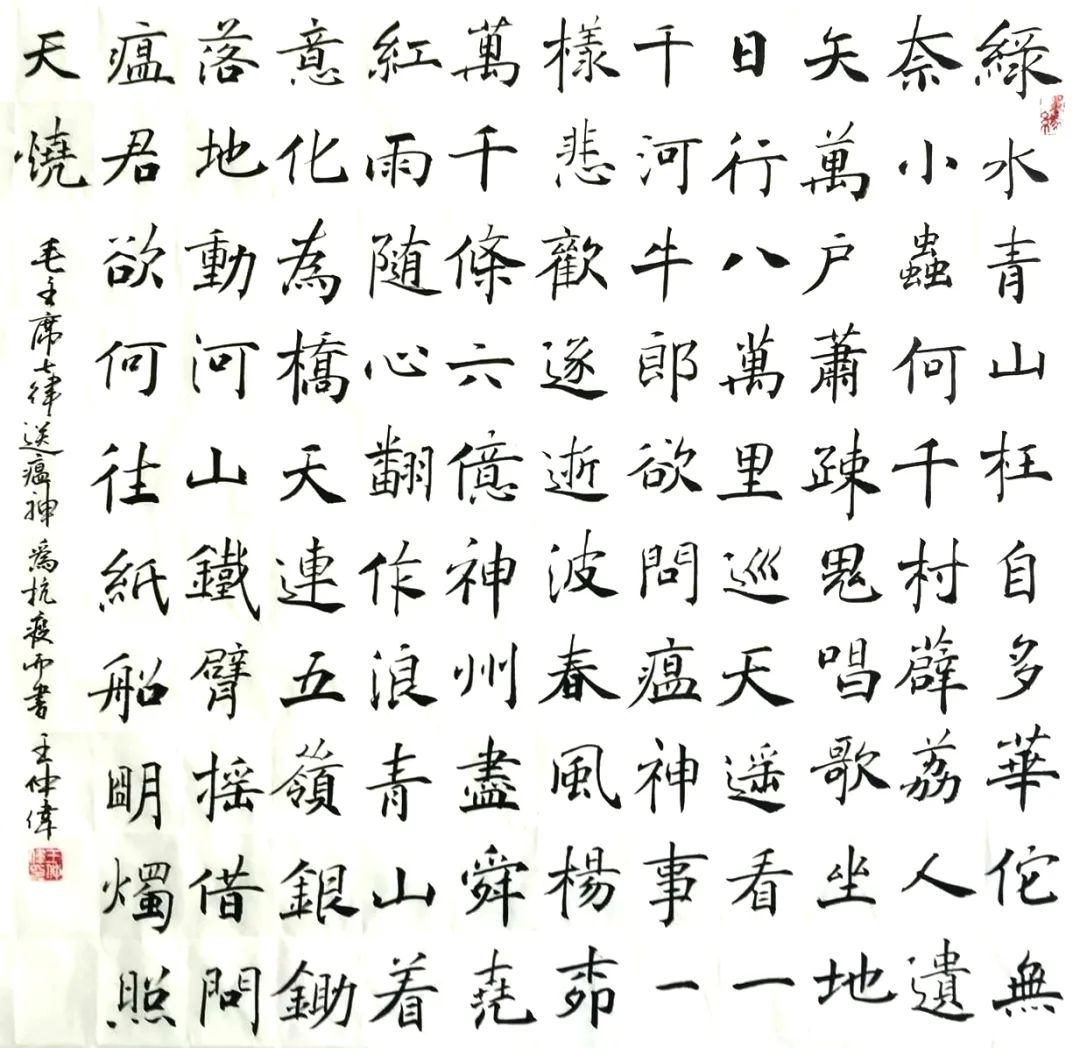 綠水青山枉自多華佗無
奈小蟲何千村薜荔人遺
矢萬户蕭疎鬼唱歌坐地
日行八萬里巡天遥看一
千河牛郎欲問瘟神事一
樣悲歡逐逝波春風楊柳
萬千條六億神州盡舜堯
紅雨随心翻作浪青山着
意化為橋天連五嶺銀鋤
落地動河山鐵臂摇借問
瘟君欲何往紙船明燭照
天燒
毛主席七律送瘟神 為抗疫而書 王仲偉